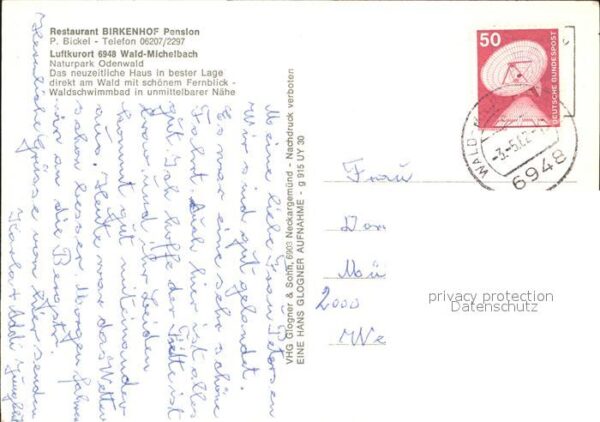 Restaurant BIRKENHOF Pension
P. Bickel - Telefon 06207/2297
Luftkurort 6948 Wald-Michelbach
Naturpark Odenwald
Das neuzeitliche Haus in bester Lage
direkt am Wald mit schönem Fernblick -
Waldschwimmbad in unmittelbarer Nähe
Meine liebe Frau Petersen
Wir sind gut gelandet.
Es war eine sehr schöne
Fahrt. Auch hier ist alles
gut. Ich hoffe der Tiette ist
brav und Ihr beiden
kommt gut miteinander
aus. Heute war das Wetter
schon besser. Morgen fahren
wir an die Bergstr.
Herzliche Grüsse von hier senden
Karla + Addi
VHG Glogner & Sohn, 6903 Neckargemünd - Nachdruck verboten
EINE HANS GLOGNER AUFNAHME - g 915 UY 30
50
DEUTSCHE BUNDESPOST
WALD-
-3.-5.82-
6948
Frau
Dor
Mü
2000
We
privacy protection
Datenschutz